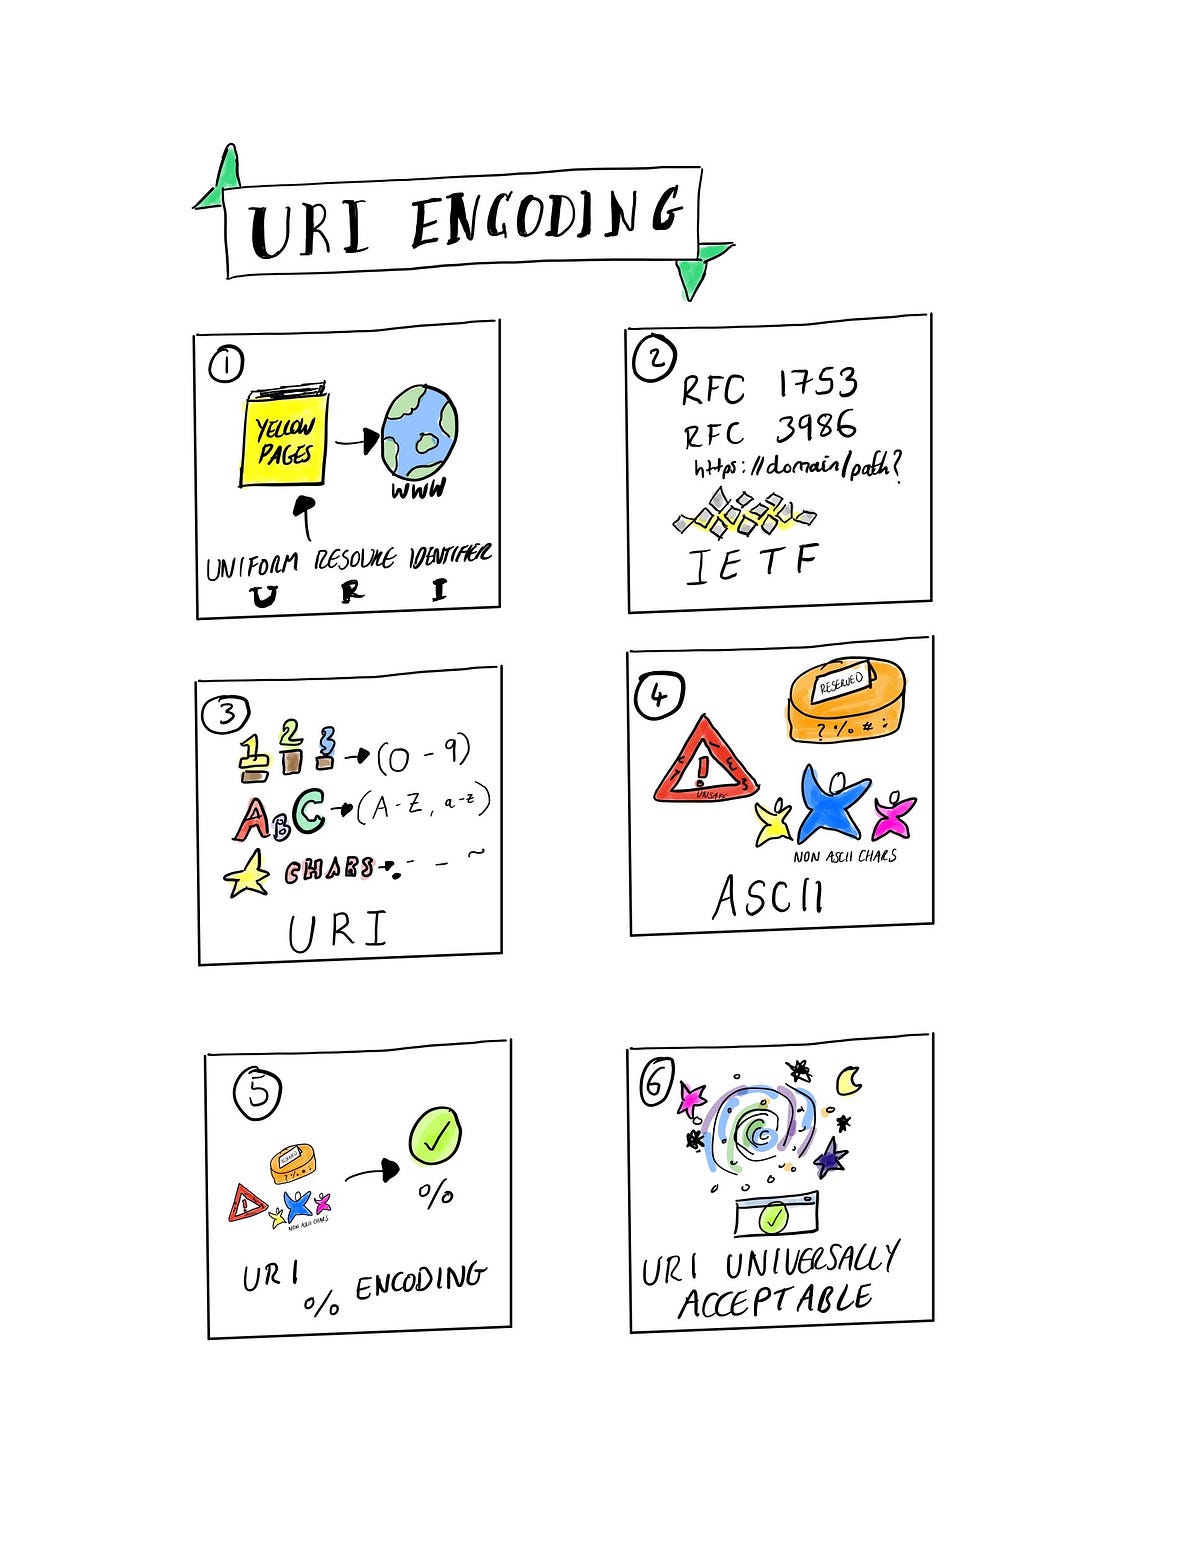 URI ENCODING
1
YELLOW
PAGES
WWW
UNIFORM RESOURE IDENTIFIER
U R I
2
RFC 1753
RFC 3986
https://domain/path?
IETF
3
1 2 3 → (0 - 9)
ABC → (A-Z, a-z)
CHARS → . - _ ~
URI
4
RESERVED
? % # :
UNSAFE
NON ASCII CHARS
ASCII
5
RESERVED
? % # :
NON ASCII CHARS
%
URI
% ENCODING
6
URI UNIVERSALLY
ACCEPTABLE